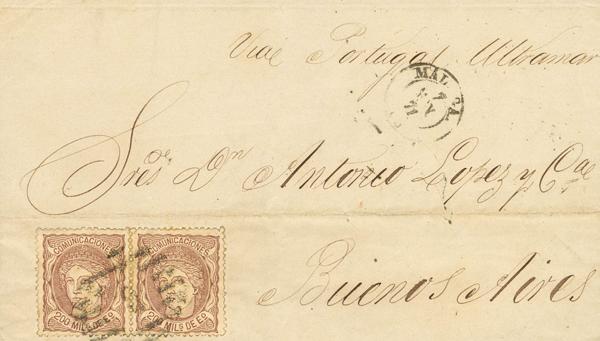 Via Portugal Ultramar
MALAGA
7
Sres de Dn Antonio Lopez y Cae
Buenos Aires
COMUNICACIONES COMUNICACIONES
200 MILS. DE Eo. 200 MILS. DE Eo.